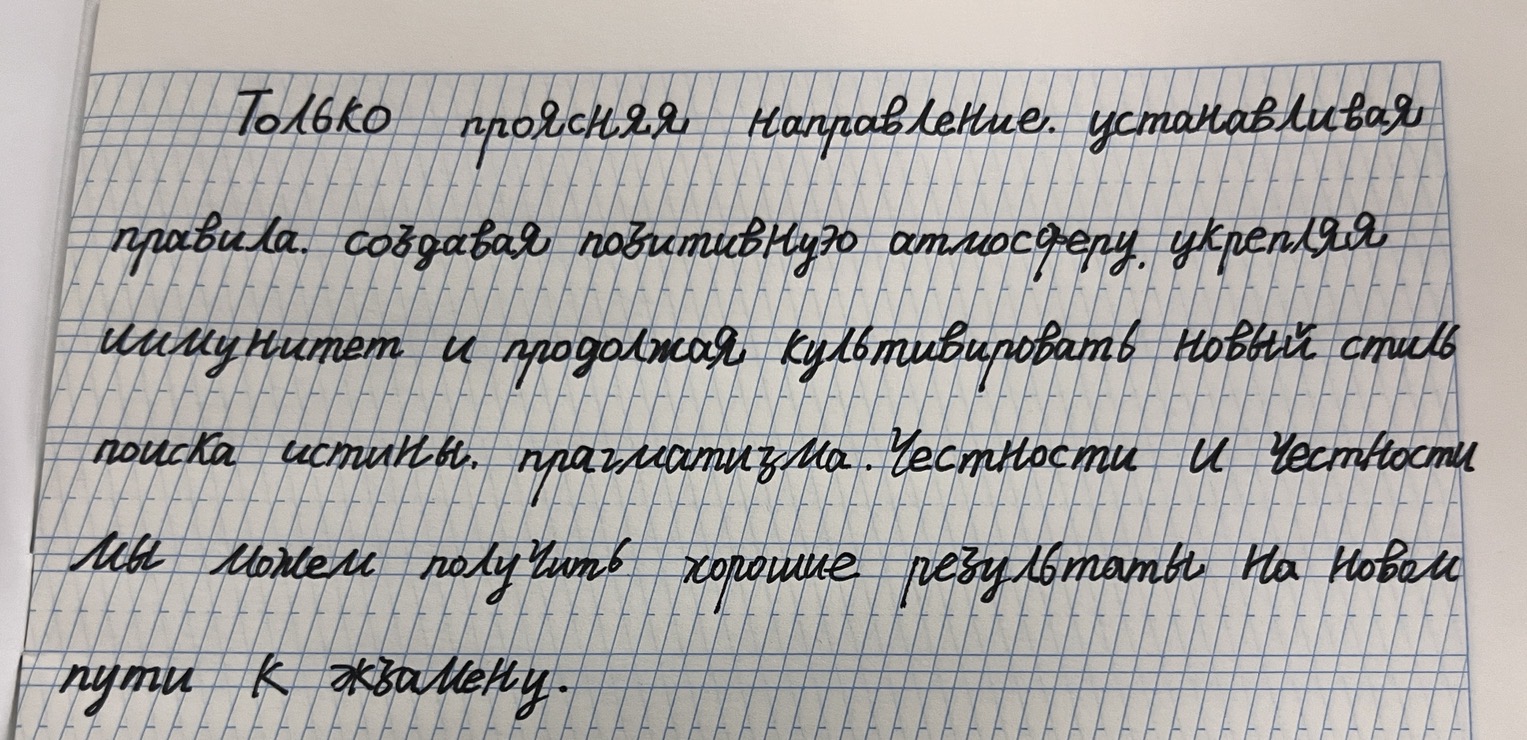 Только проясняя направление. устанавливая
правила. создавая позитивную атмосферу. укрепляя
иммунитет и продолжая культивировать новый стиль
поиска истины. прагматизма. Честности и честности
мы можем получить хорошие результаты на новом
пути к экзамену.